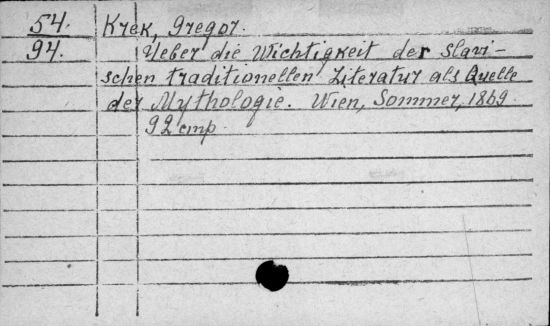 54. Krek, Gregor.
94. Ueber die Wichtigkeit der slavi-
schen traditionellen Literatur als Quelle
der Mythologie. Wien, Sommer, 1869.
92 cmp.